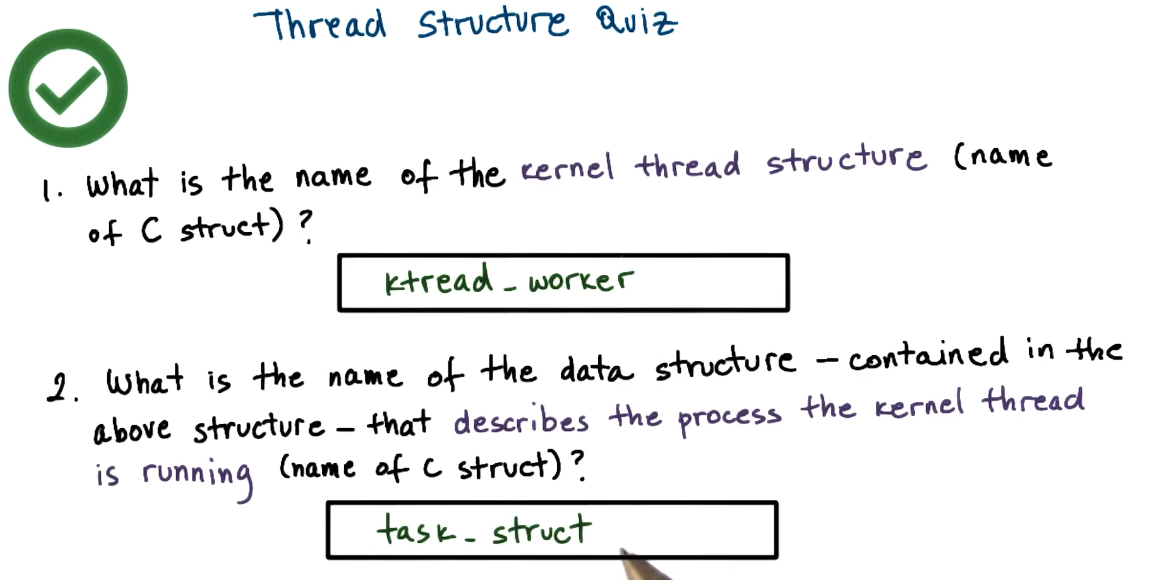 Thread Structure Quiz
1. What is the name of the kernel thread structure (name
of C struct)?
ktread_worker
2. What is the name of the data structure - contained in the
above structure - that describes the process the kernel thread
is running (name of C struct)?
task_struct